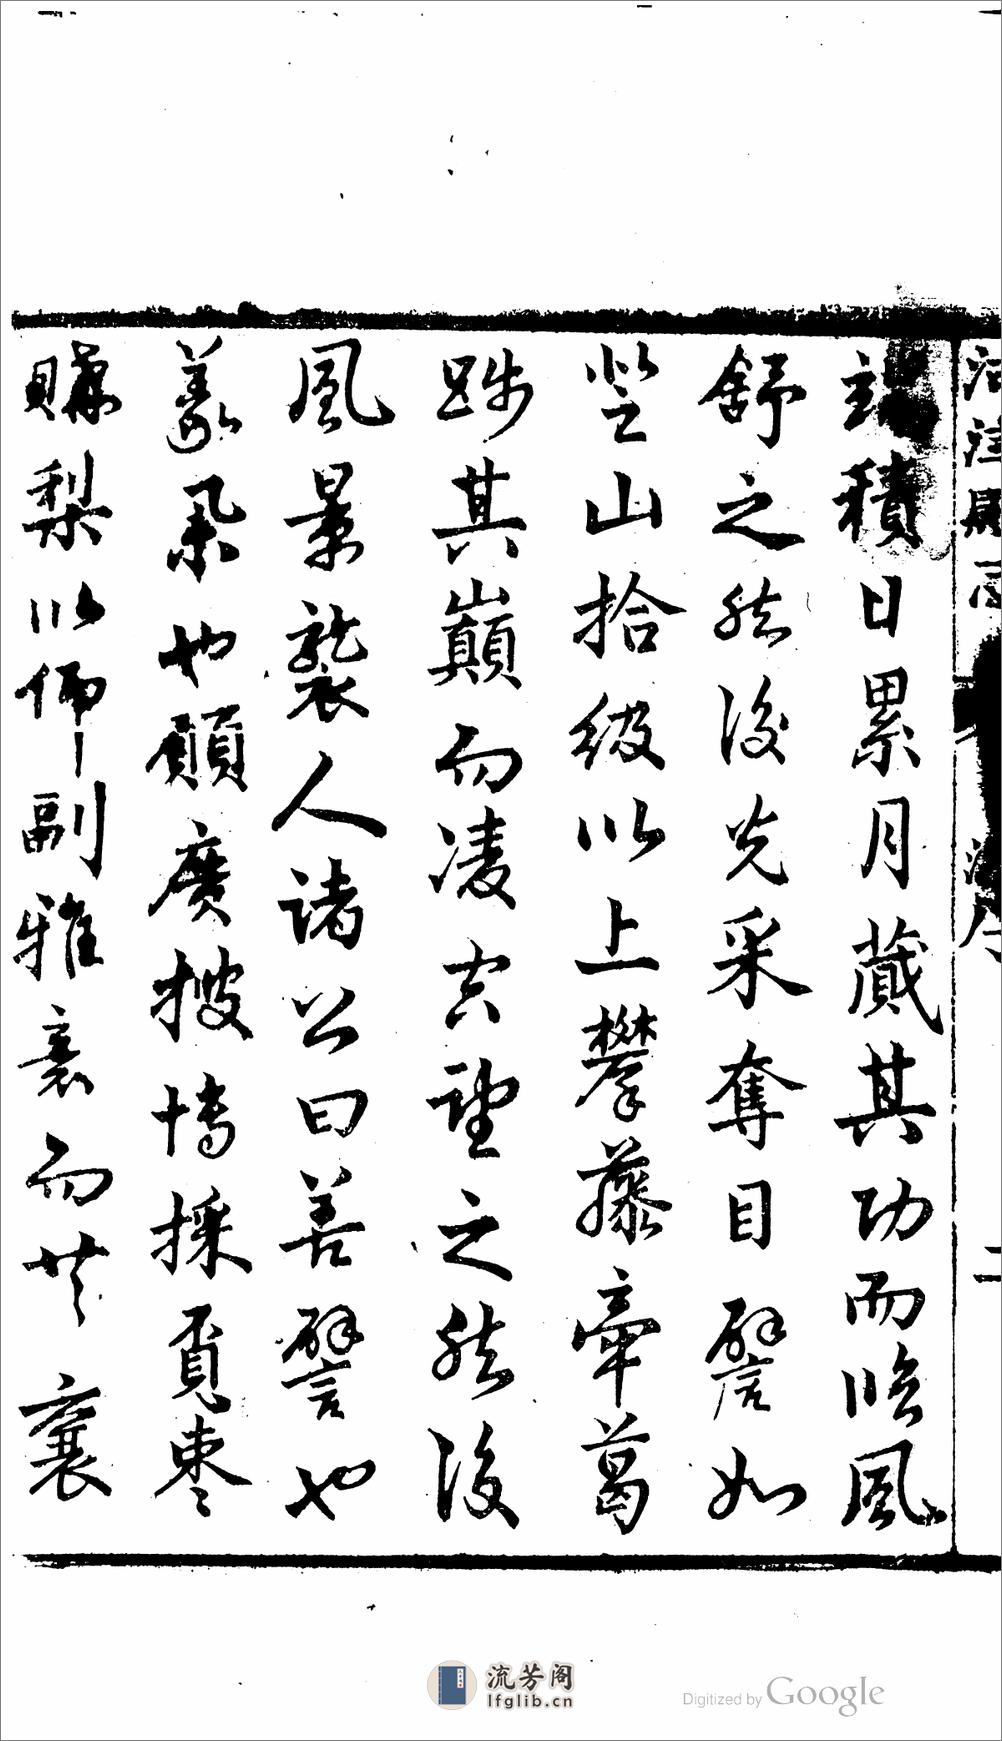 積日累月蔵其功而臨風
舒之然後光采奪目譬如
登山拾級以上攀藤牽葛
躋其巔而凌空望之然後
風景襲人諸公曰善譬也
義采也願廣搜博採覓棗
購梨以俻副雅意而共襄
二
流芳阁
lfglib.cn
Digitized by Google